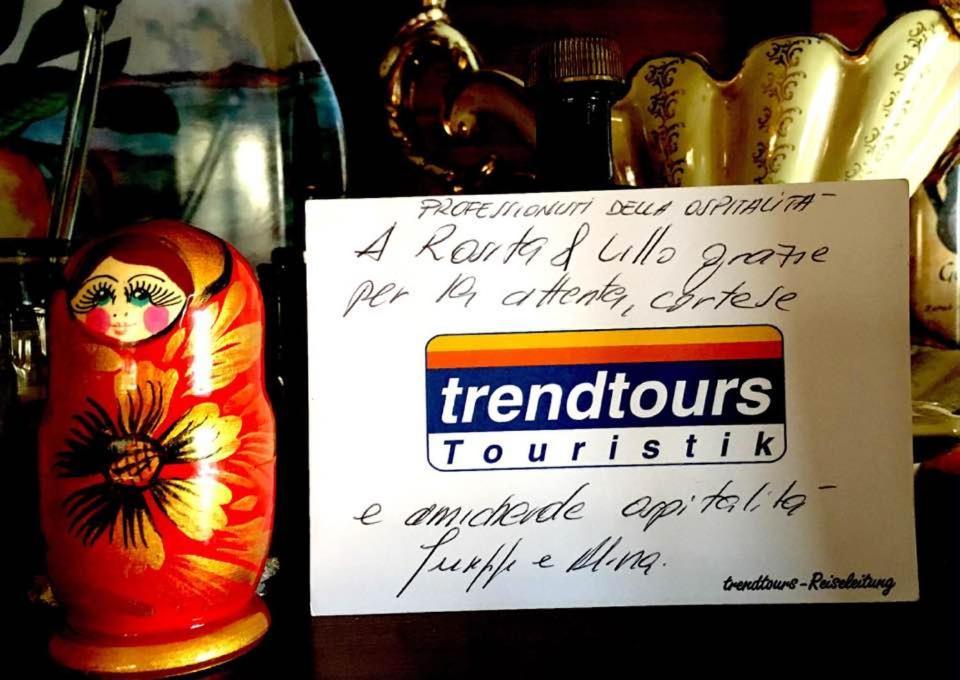 PROFESSIONISTI DELLA OSPITALITÀ
A Rosita & Lillo grazie
per la attenta, cortese
trendtours
Touristik
e amichevole ospitalità
e Alina.
trendtours-Reiseleitung